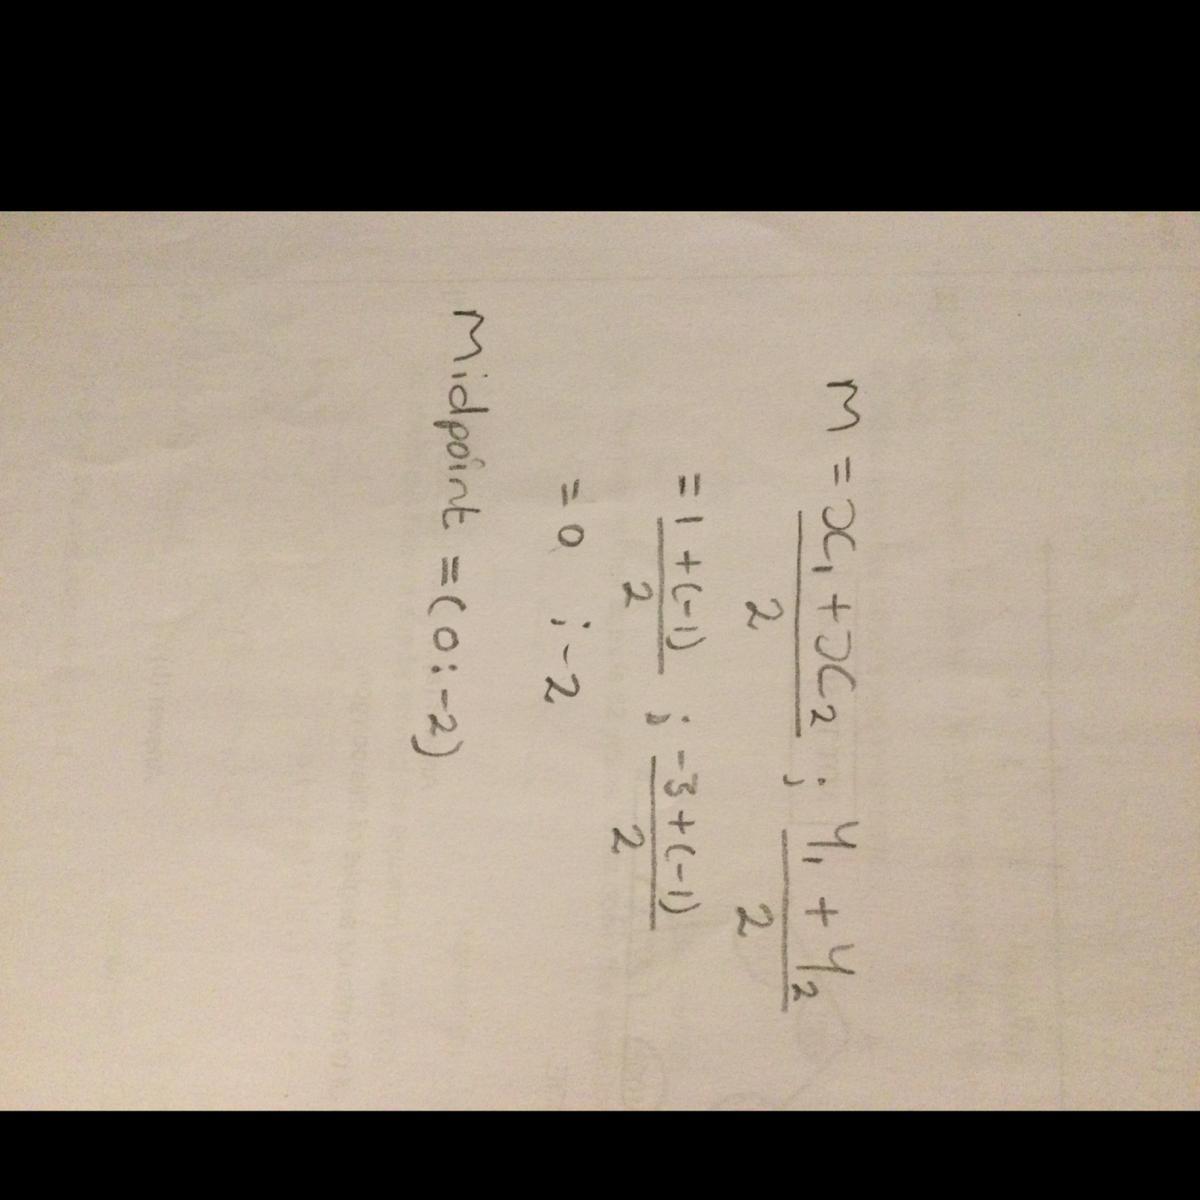 M = x₁ + x₂ / 2 ; y₁ + y₂ / 2
= 1 + (-1) / 2 ; -3 + (-1) / 2
= 0 ; -2
Midpoint = (0 : -2)